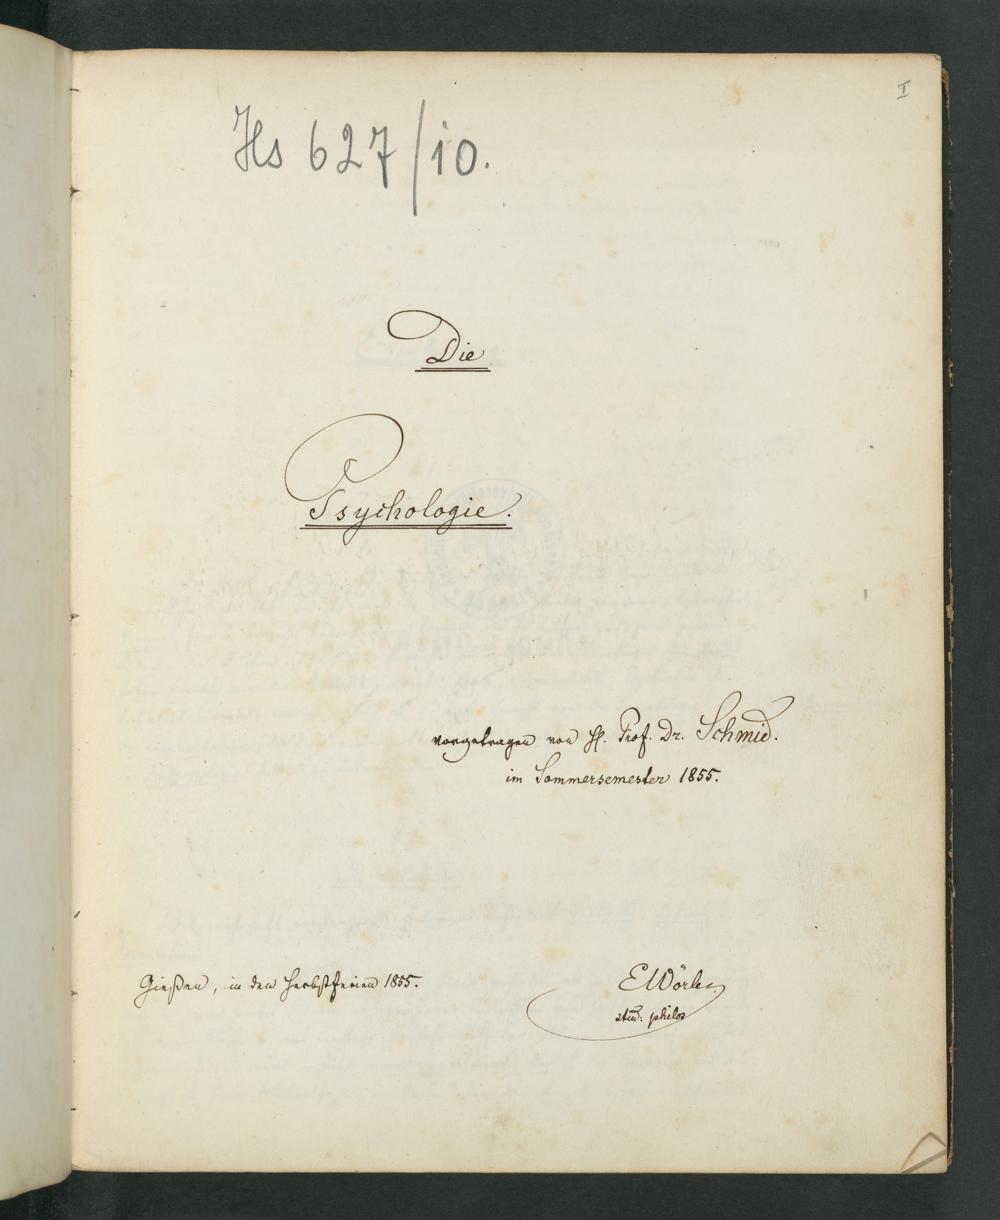 I
Hs 627/10.
Die
Psychologie.
vorgetragen von H. Prof. Dr. Schmid.
im Sommersemester 1855.
Gießen, in den Herbstferien 1855.
E Wörle
stud. philos